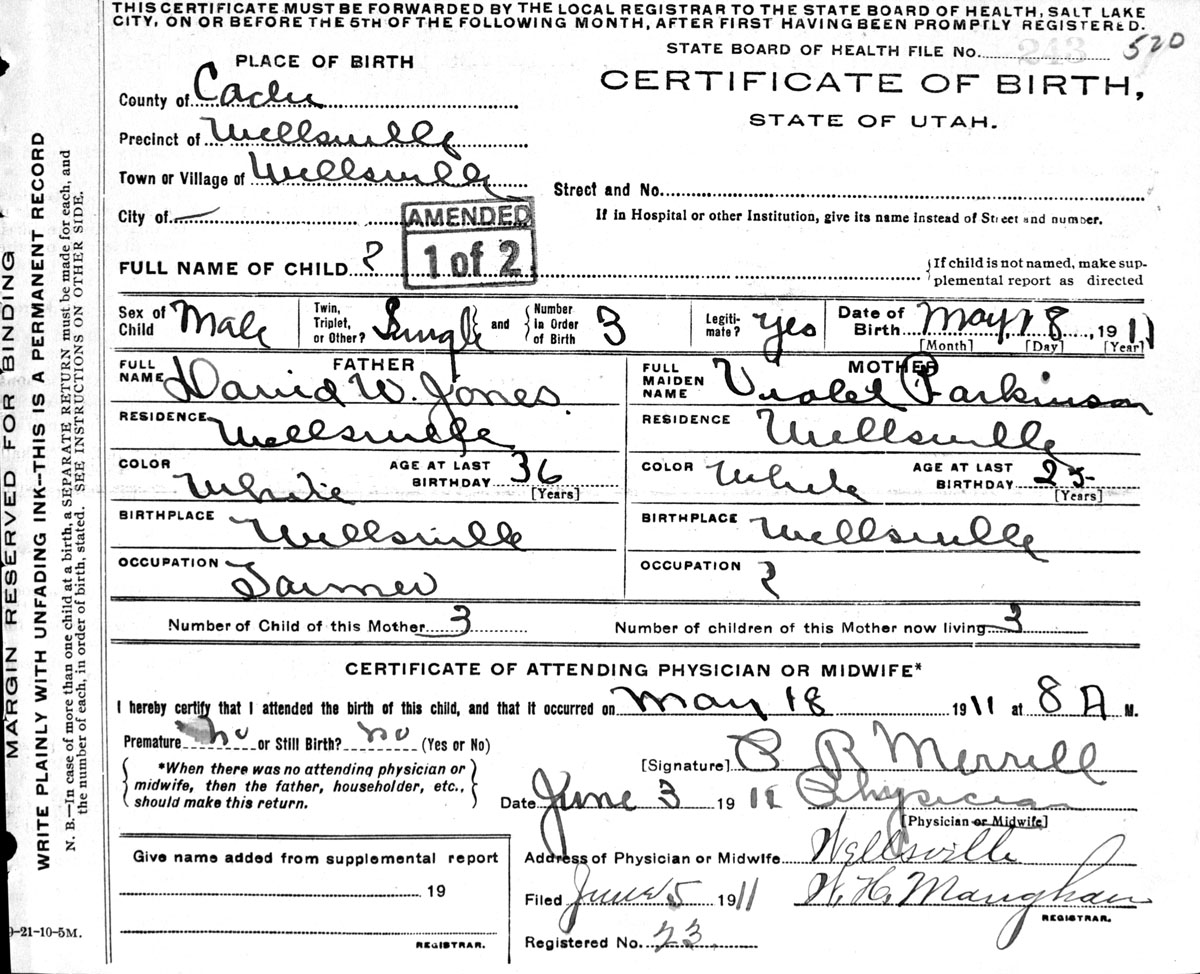 THIS CERTIFICATE MUST BE FORWARDED BY THE LOCAL REGISTRAR TO THE STATE BOARD OF HEALTH, SALT LAKE
CITY, ON OR BEFORE THE 5TH OF THE FOLLOWING MONTH, AFTER FIRST HAVING BEEN PROMPTLY REGISTERED.
STATE BOARD OF HEALTH FILE No. 243 520
PLACE OF BIRTH
CERTIFICATE OF BIRTH,
STATE OF UTAH.
County of Cache
Precinct of Wellsville
Town or Village of Wellsville
Street and No.
City of
If in Hospital or other Institution, give its name instead of Street and number.
AMENDED
1 of 2
FULL NAME OF CHILD ?
{If child is not named, make sup-
plemental report as directed
Sex of Child Male
Twin, Triplet, or Other? Single and Number in Order of Birth 3
Legiti-mate? yes
Date of Birth May 18, 1911
[Month] [Day] [Year]
FATHER
FULL NAME David W. Jones.
MOTHER
FULL MAIDEN NAME Violet Parkinson
RESIDENCE Wellsville
RESIDENCE Wellsville
COLOR White AGE AT LAST BIRTHDAY 36 [Years]
COLOR White AGE AT LAST BIRTHDAY 25 [Years]
BIRTHPLACE Wellsville
BIRTHPLACE Wellsville
OCCUPATION Farmer
OCCUPATION ?
Number of Child of this Mother 3
Number of children of this Mother now living 3
CERTIFICATE OF ATTENDING PHYSICIAN OR MIDWIFE*
I hereby certify that I attended the birth of this child, and that it occurred on May 18 1911 at 8 A M.
Premature no or Still Birth? no (Yes or No)
*When there was no attending physician or
midwife, then the father, householder, etc.,
should make this return.
[Signature] P R Merrill
Date June 3 1911 Physician
[Physician or Midwife]
Address of Physician or Midwife Wellsville
Filed June 5 1911 W. H. Maughan
REGISTRAR.
Registered No. 23
Give name added from supplemental report
19
REGISTRAR.
9-21-10-5M.
MARGIN RESERVED FOR BINDING
WRITE PLAINLY WITH UNFADING INK--THIS IS A PERMANENT RECORD
N. B.—In case of more than one child at a birth, a SEPARATE RETURN must be made for each, and
the number of each, in order of birth, stated. SEE INSTRUCTIONS ON OTHER SIDE.